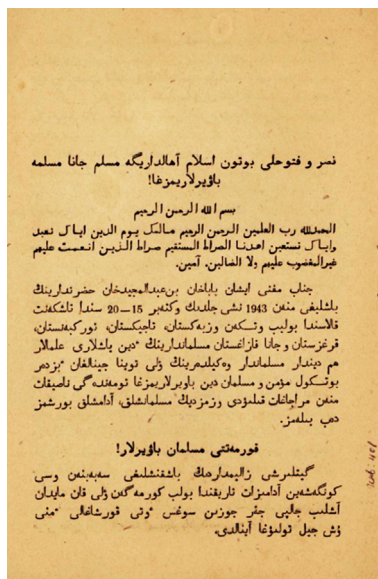 نسر و فتوحلی بوتون اسلام آهالداریگه مسلم جانا مسلمه
باۋیرلاریمزغا!
بسم الله الرحمن الرحیم
الحمدلله رب العلمین الرحمن الرحیم مالک یوم الدین ایاک نعبد
وایاک نستعین اهدنا الصراط المستقیم صراط الذین انعمت علیهم
غیرالمغضوب علیهم ولا الضالین. آمین.
جناب مفتی ایشان باباخان بن‌عبدالمجیدخان حضرتدارینڭ
باشلیغی منەن 1943 نشی جلدىڭ وكتەبر 15—20 سندا تاشكەنت
قالاسندا بولیب وتكەن وزبەكستان، تاجیكستان، توركمەنستان،
قرغزستان و جانا قازاغستان مسلماندارینڭ ٴدین باشلاری علمالار
هم دیندار مسلماندار وەكیلدەرینڭ ۇلی توینا جینالغان ٴبزدەر
بوتكول مؤمن و مسلمان دین باویرلاریمزغا تومەندەگی ناصیقات
منەن مراجاغات قىلمۋدی وزمزدىڭ مسلمانشلىق، آدامشلىق بورشمز
دەپ بىلەمز.
قورمەتتی مسلمان باۋیرلار!
گیتلىرشی زالیمداردىڭ باسقنشلىغی سەبەبنەن وسی
كونگەشەین آدامزات تاریقندا بولىپ كورمەگەن ۇلی قان مایدان
آشلىپ جالپی جەر جوزىن سوغس ٴوتی قورشاغالی ٴمنی
ٴۇش جىل تولىۋغا آینالدی.